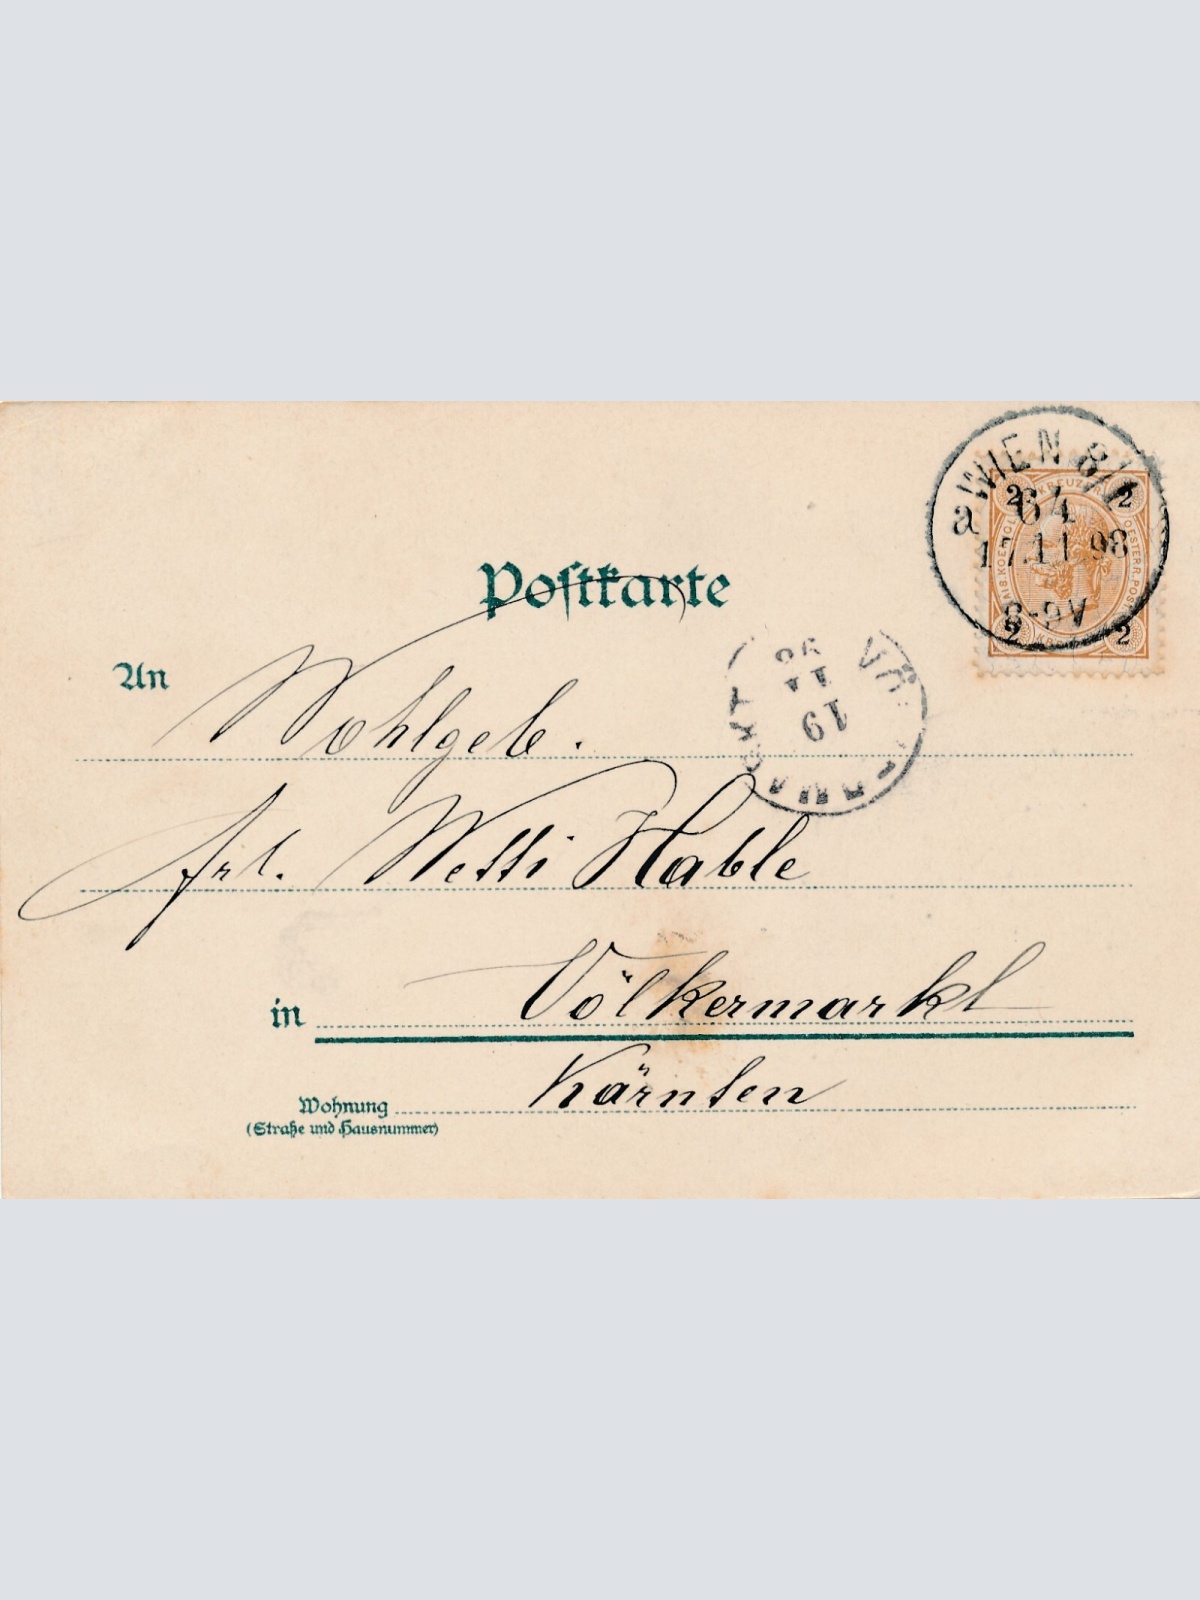 WIEN 8/1
a 64
17.11.98
8-9V
2 KREUZER 2
OESTERR. POST
2 2
Postkarte
An Wohlgeb.
19
11
98
frl. Netti Hable
in Völkermarkt
Kärnten
Wohnung
(Straße und Hausnummer)